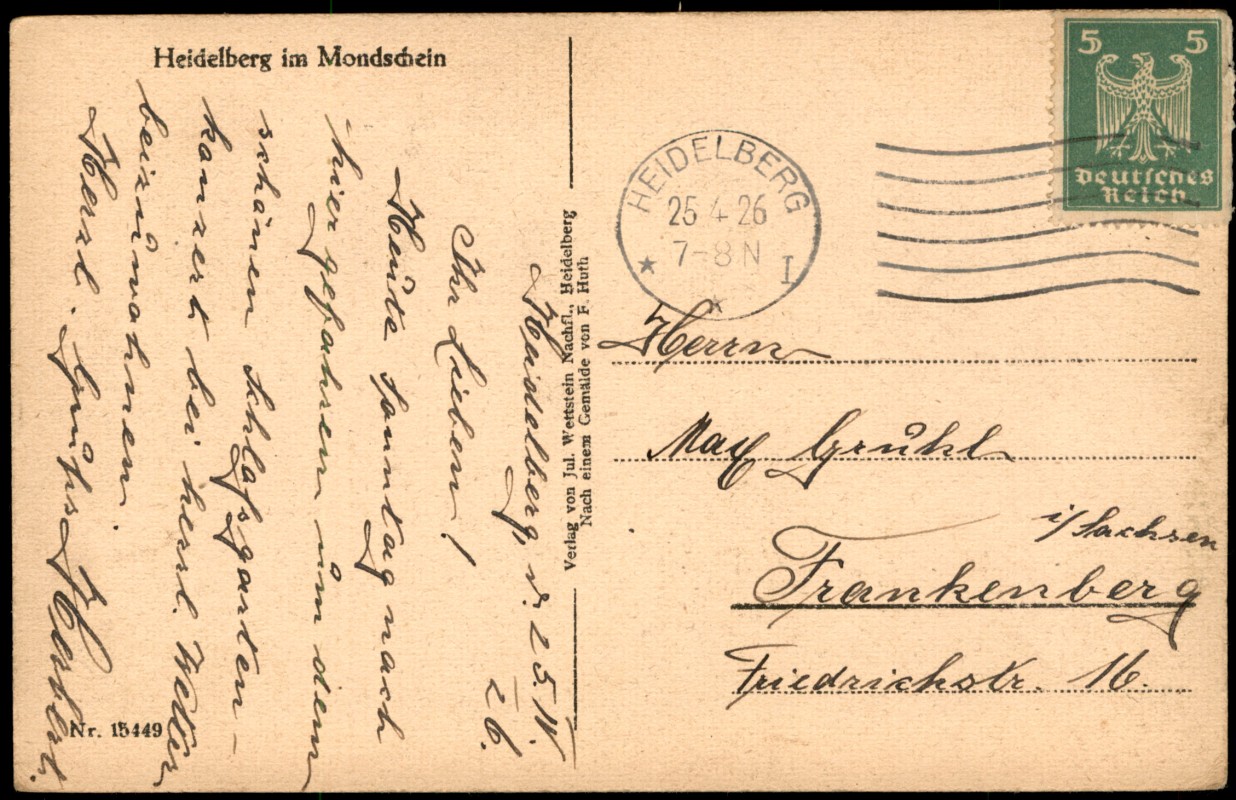 Heidelberg im Mondschein
Heidelberg, d. 25. IV. 26.
Ihr Lieben!
Heute Sonntag nach
hier gefahren um dem
schönen Schloßgarten-
konzert bei herrl. Wetter
beizuwohnen.
Herzl. Grüße Herbert.
Nr. 15449
Verlag von Jul. Wettstein Nachfl., Heidelberg
Nach einem Gemälde von F. Huth
HEIDELBERG
25 4 26
7-8 N
I
5 5
Deutsches
Reich
Herrn
Max Grühl
i/Sachsen
Frankenberg
Friedrichstr. 16.